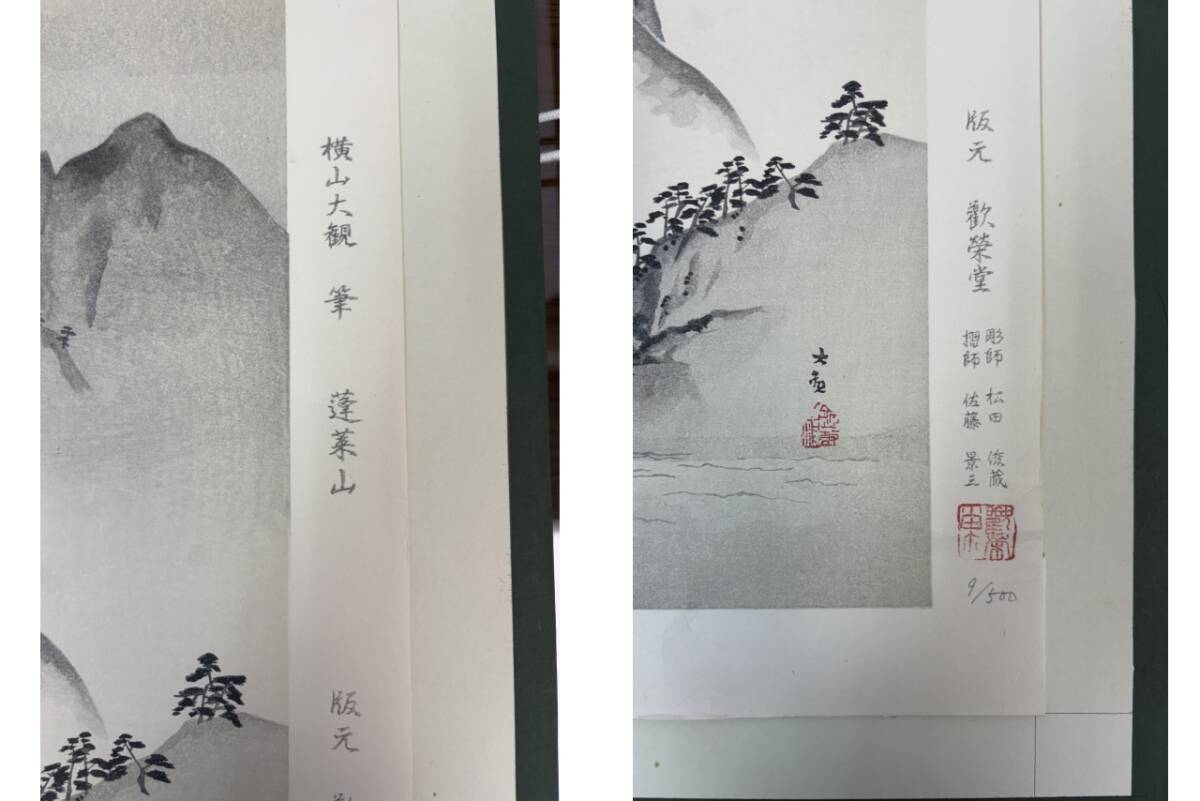 横山大観 筆 蓬莱山
版元
版元 歡榮堂
彫師 松田 俊蔵
摺師 佐藤 景三
大観
9/500